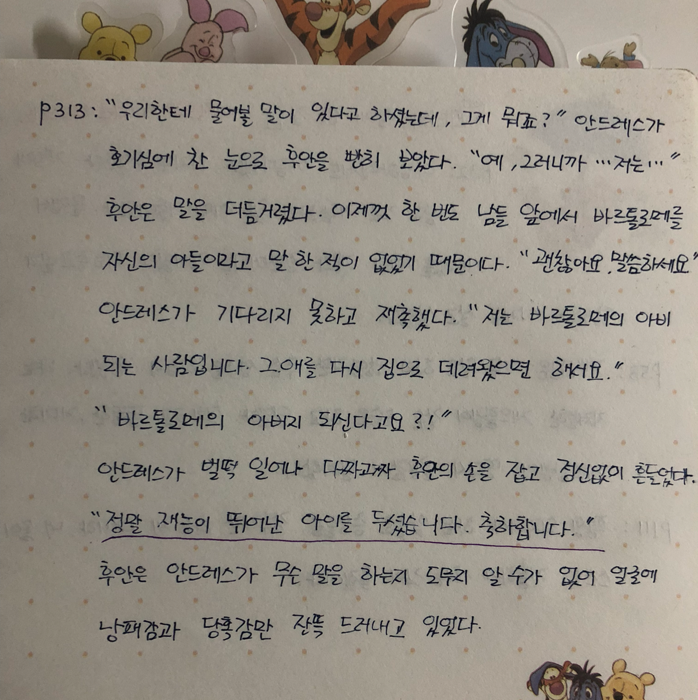 p313: "우리한테 물어볼 말이 있다고 하셨는데, 그게 뭐죠?" 안드레스가
호기심에 찬 눈으로 후안을 빤히 보았다. "예, 그러니까 … 저는…"
후안은 말을 더듬거렸다. 이제껏 한 번도 남들 앞에서 바르톨로메를
자신의 아들이라고 말 한 적이 없었기 때문이다. "괜찮아요, 말씀하세요"
안드레스가 기다리지 못하고 재촉했다. "저는 바르톨로메의 아비
되는 사람입니다. 그 애를 다시 집으로 데려왔으면 해서요."
"바르톨로메의 아버지 되신다고요?!"
안드레스가 벌떡 일어나 다짜고짜 후안의 손을 잡고 정신없이 흔들었다.
"정말 재능이 뛰어난 아이를 두셨습니다. 축하합니다."
후안은 안드레스가 무슨 말을 하는지 도무지 알 수가 없어 얼굴에
낭패감과 당혹감만 잔뜩 드러내고 있었다.